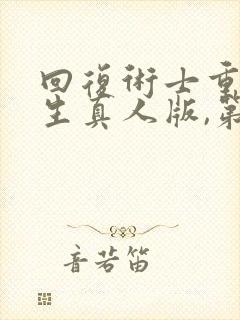 回復術士重
生真人版,第
音若笛